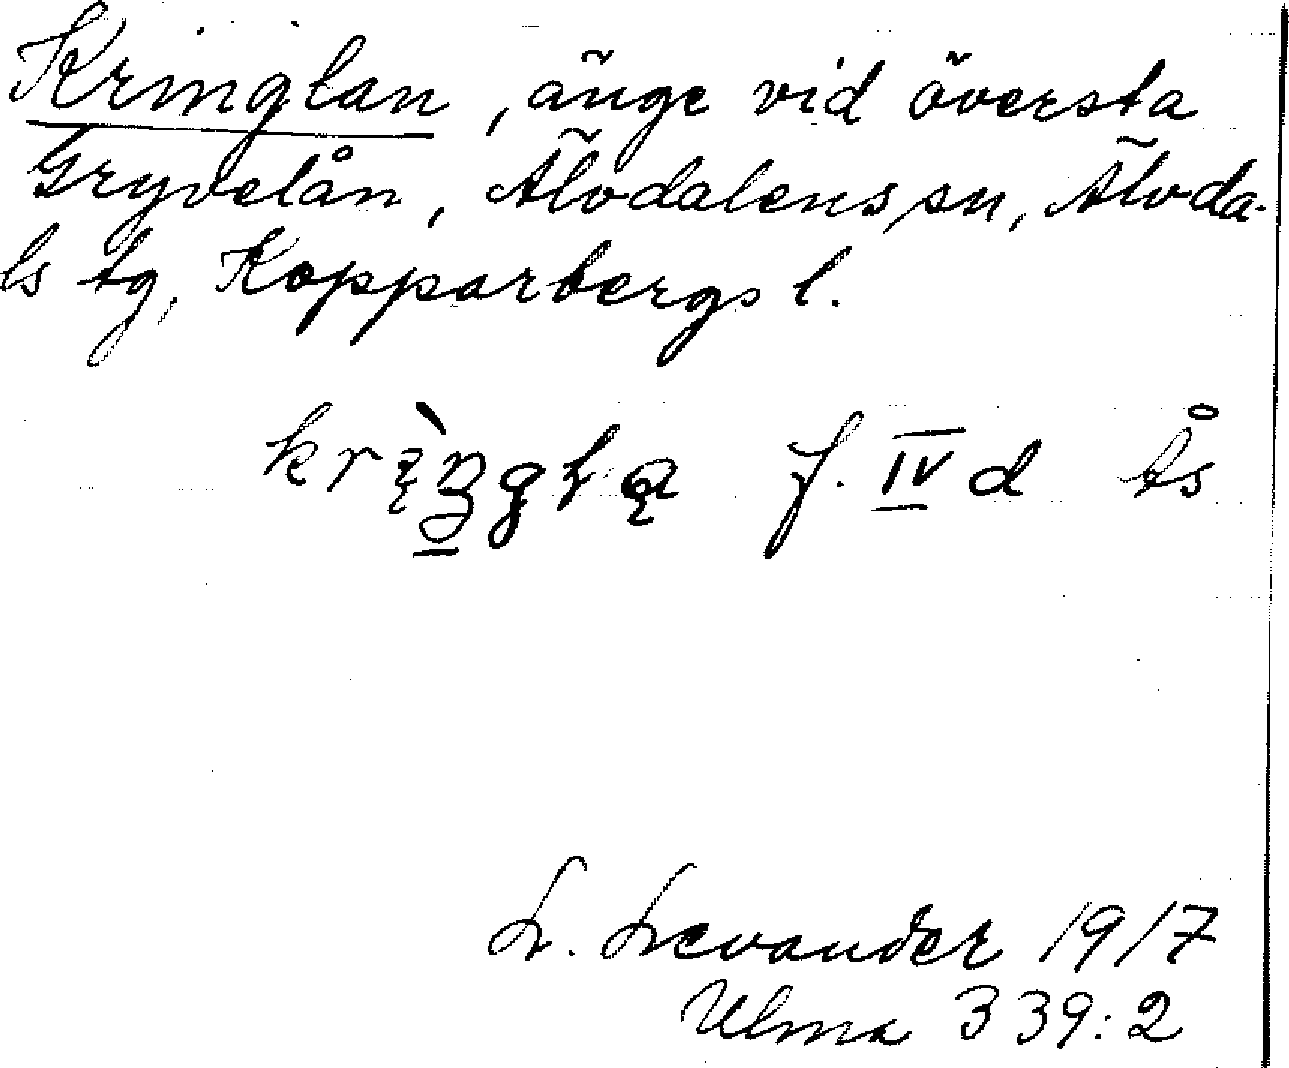 Kringlan, änge vid översta
Gryvelån, Älvdalens sn, Älvda-
ls tg, Kopparbergs l.
f. IV d Ås
L. Levander 1917
Ulma 339:2